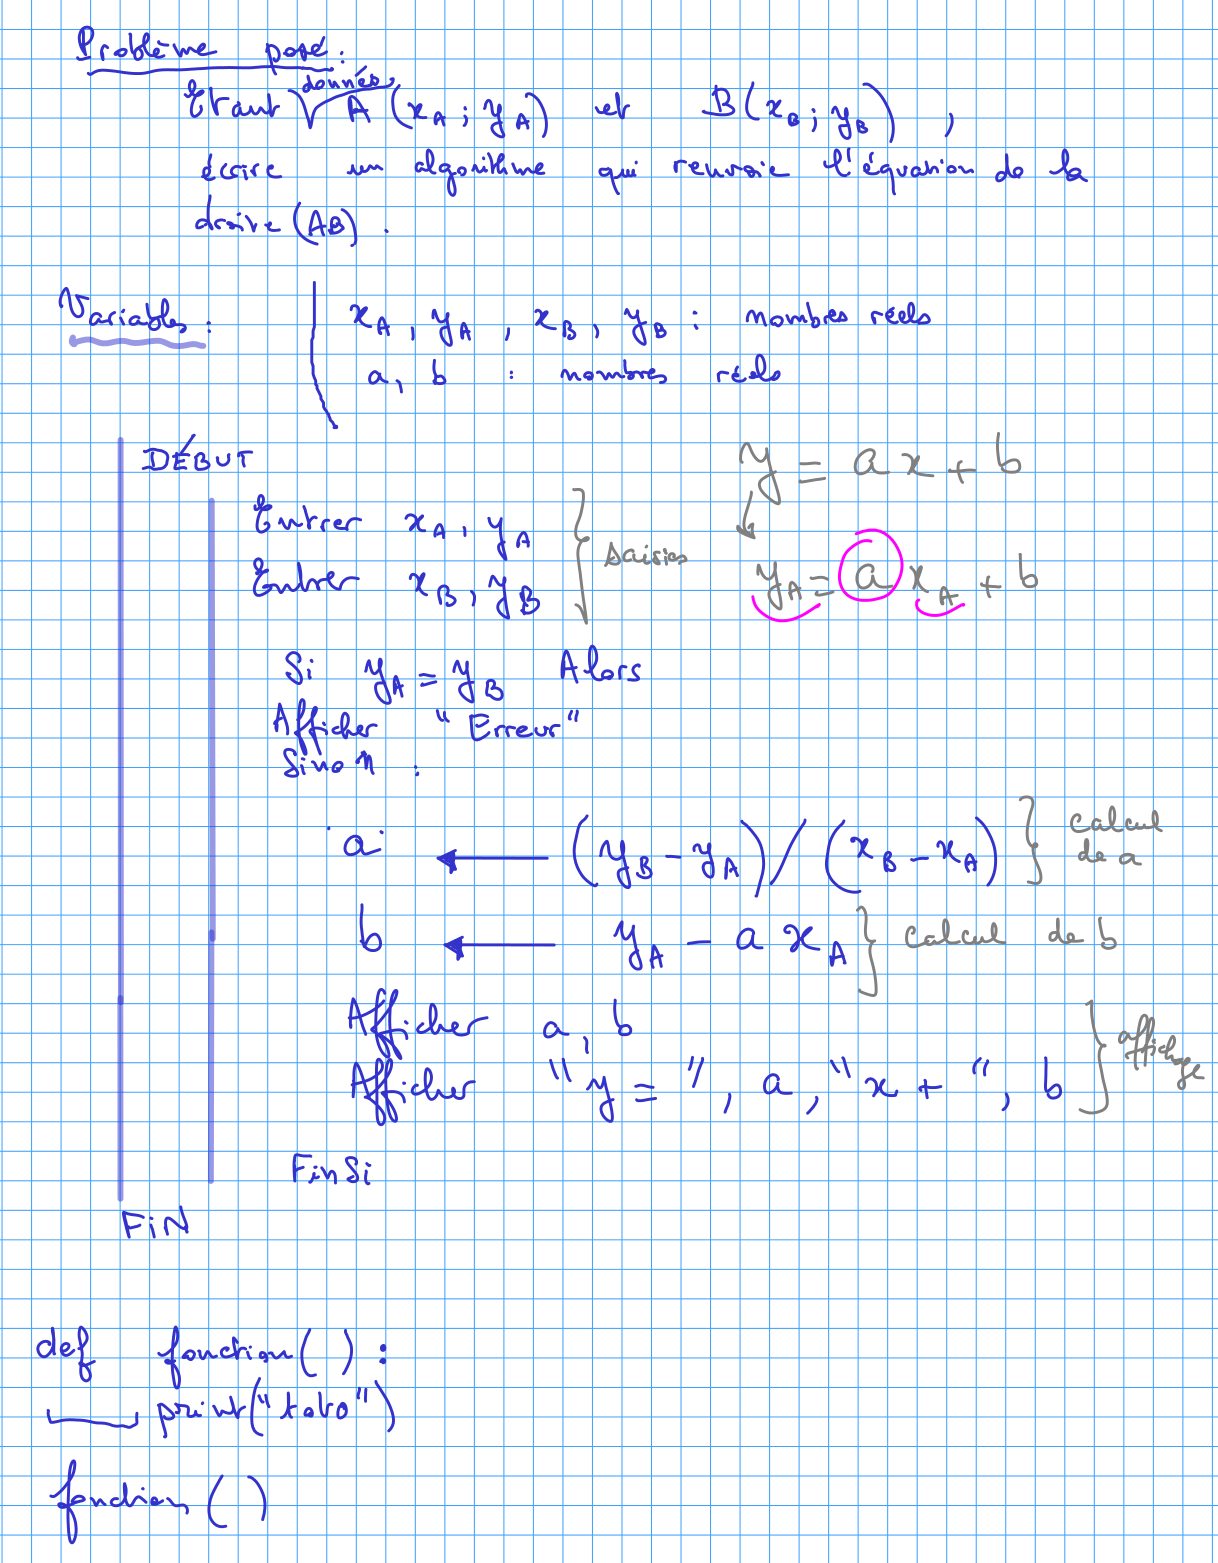 Problème posé :
Etant données A (x_A ; y_A) et B(x_B ; y_B) ,
écrire un algorithme qui renvoie l'équation de la
droite (AB) .
Variables :
x_A , y_A , x_B , y_B : nombres réels
a, b : nombres réels
DÉBUT
y = a x + b
Entrer x_A , y_A
Entrer x_B , y_B
saisies
y_A = a x_A + b
Si y_A = y_B Alors
Afficher "Erreur"
Sinon :
a ← (y_B - y_A) / (x_B - x_A) calcul de a
b ← y_A - a x_A calcul de b
Afficher a, b
Afficher "y = ", a, "x + ", b
affichage
FinSi
FiN
def fonction( ) :
print("toto")
fonction ( )